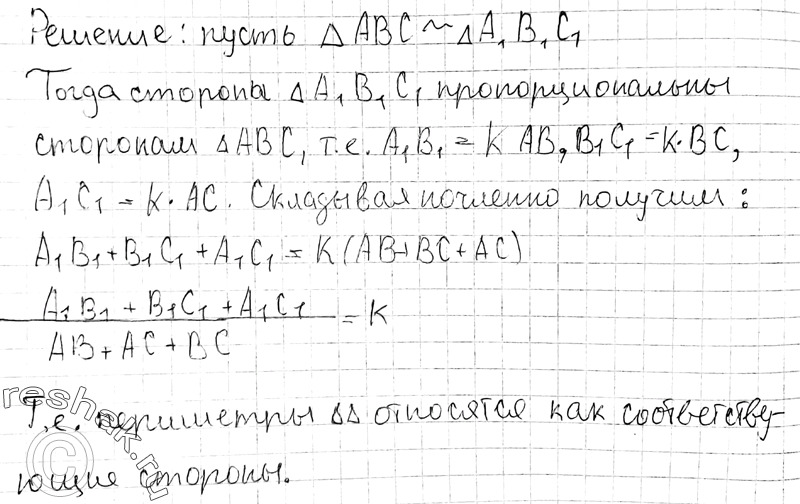 Решение: пусть Δ ABC ~ Δ A₁B₁C₁
Тогда стороны Δ A₁B₁C₁ пропорциональны
сторонам Δ ABC, т.е. A₁B₁ = K AB, B₁C₁ = K·BC,
A₁C₁ = K·AC. Складывая почленно получим:
A₁B₁ + B₁C₁ + A₁C₁ = K (AB + BC + AC)
A₁B₁ + B₁C₁ + A₁C₁
= K
AB + AC + BC
Т.е. периметры ΔΔ относятся как соответству-
ющие стороны.
© reshak.ru